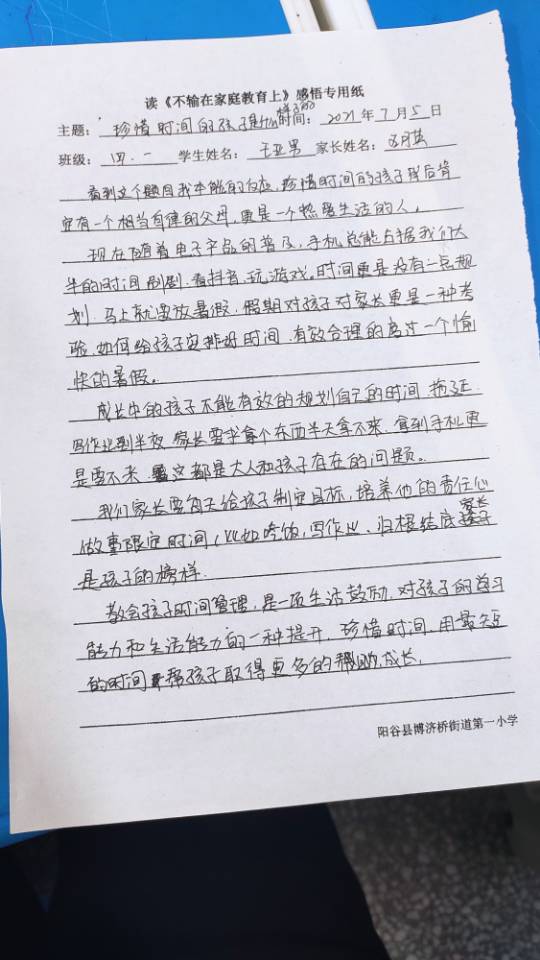 读《不输在家庭教育上》感悟专用纸
主题：珍惜时间的孩子是什么样子的 时间：2021年7月5日
班级：四.一 学生姓名：王亚男 家长姓名：
看到这个题目我本能的反应，珍惜时间的孩子背后肯
定有一个相当自律的父母，更是一个热爱生活的人。
现在随着电子产品的普及，手机总能占据我们大
半的时间刷剧.看抖音.玩游戏.时间更是没有一点规
划.马上就要放暑假，假期对孩子对家长更是一种考
验.如何给孩子安排好时间.有效合理的度过一个愉
快的暑假。
成长中的孩子不能有效的规划自己的时间.拖延.
写作业到半夜.家长要求拿个东西半天拿不来.拿到手机更
是要不来.这都是大人和孩子存在的问题。
我们家长要每天给孩子制定目标，培养他的责任心
做事限定时间，比如吃饭，写作业.归根结底家长
是孩子的榜样.
教会孩子时间管理，是一项生活鼓励.对孩子的学习
能力和生活能力的一种提升.珍惜时间.用最短
的时间帮孩子取得更多的帮助.成长.
阳谷县博济桥街道第一小学